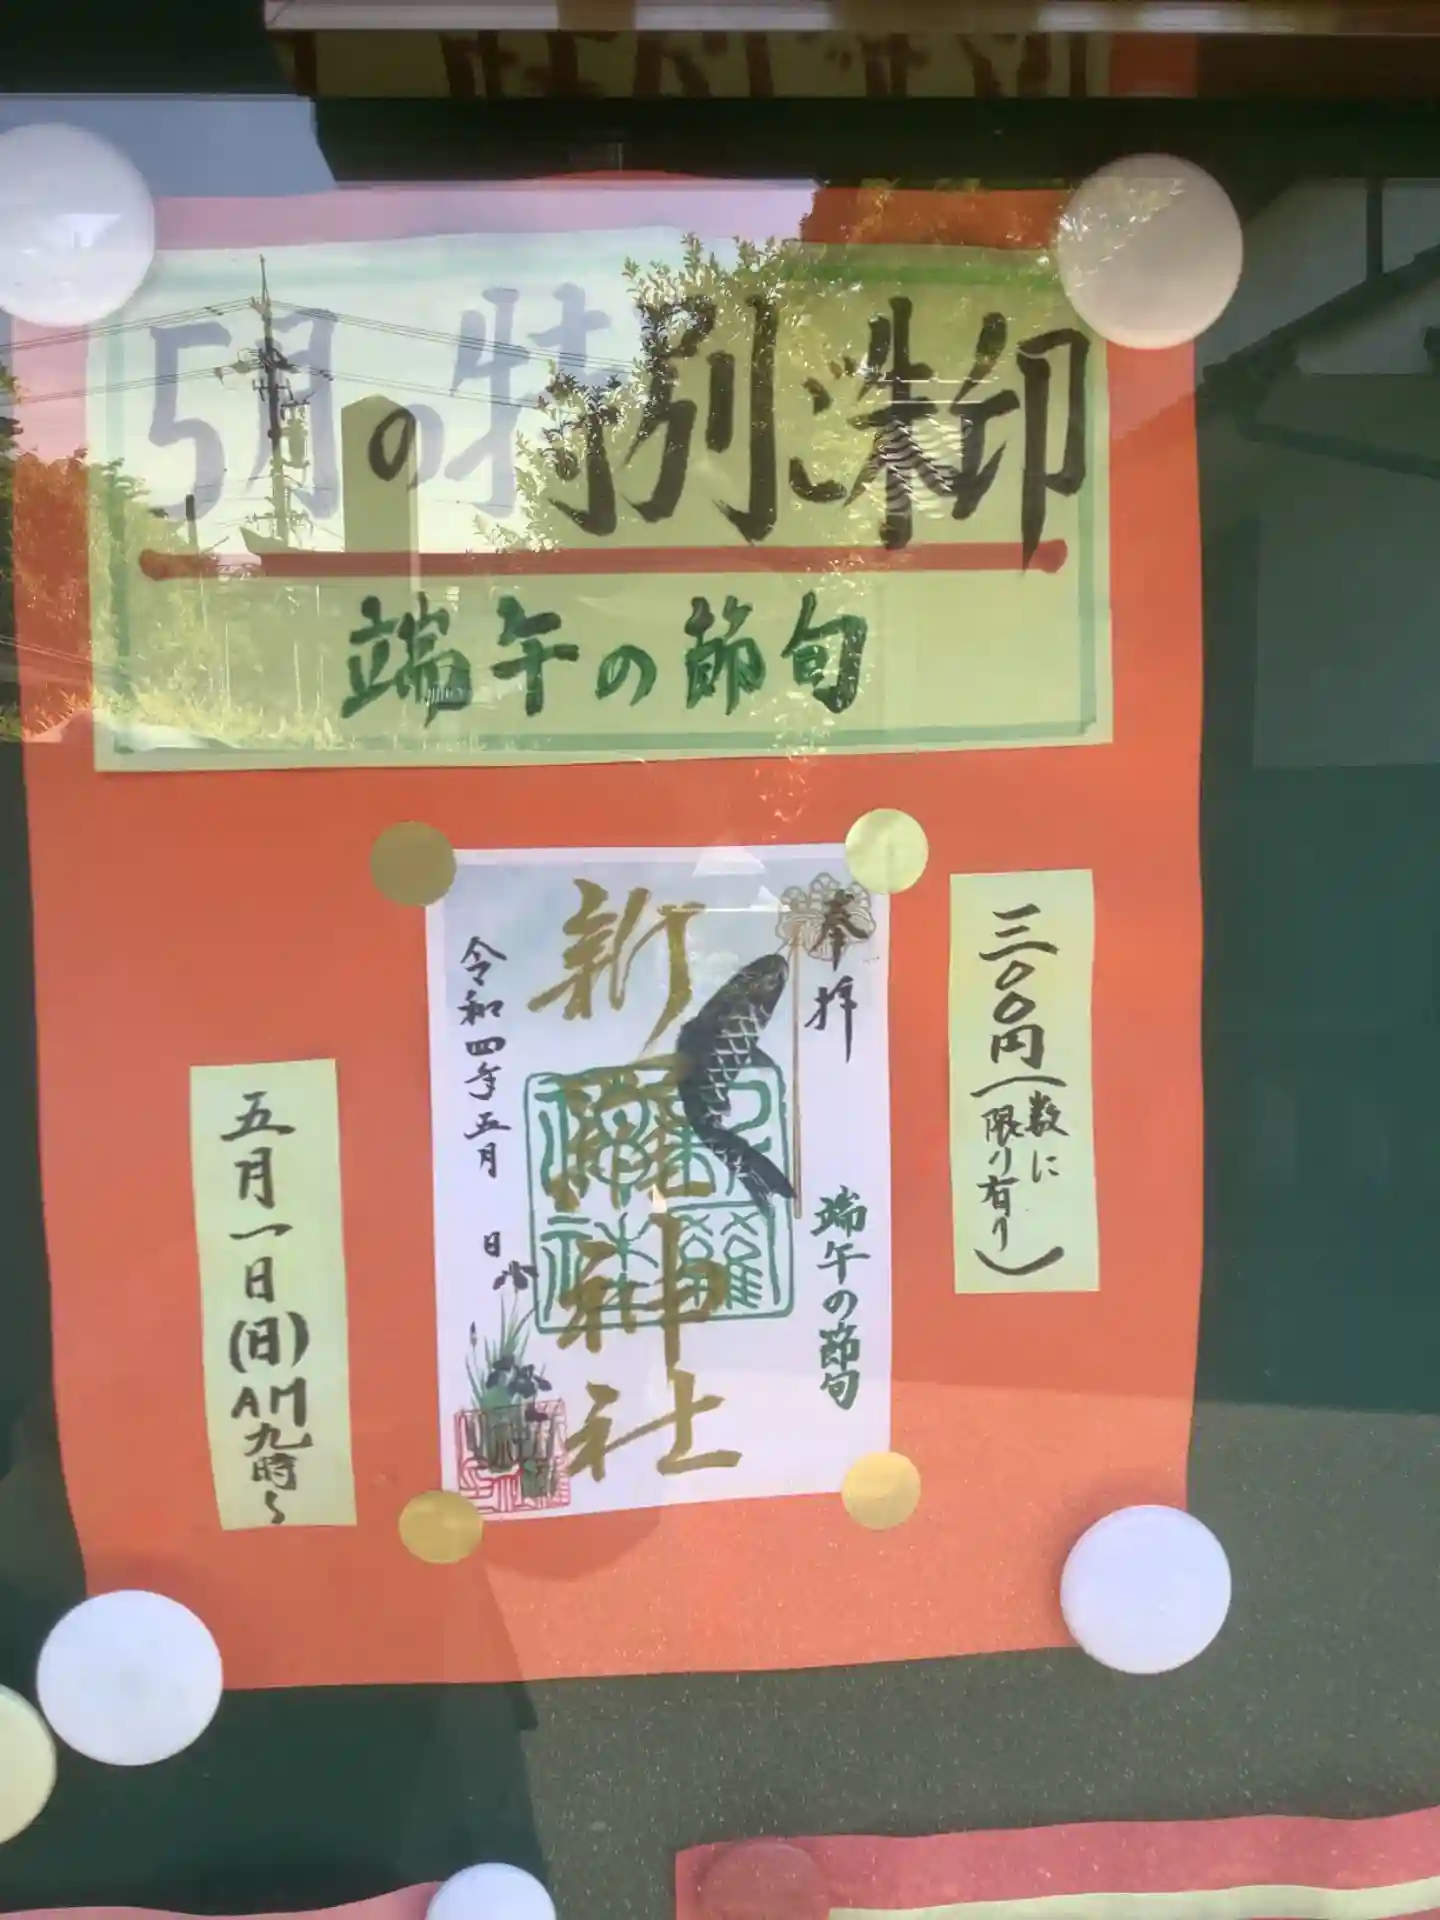 5月の特別御朱印
端午の節句
三〇〇円(数に
限り有り)
奉拝
端午の節句
神社
令和四年五月 日
五月一日(日)AM九時～